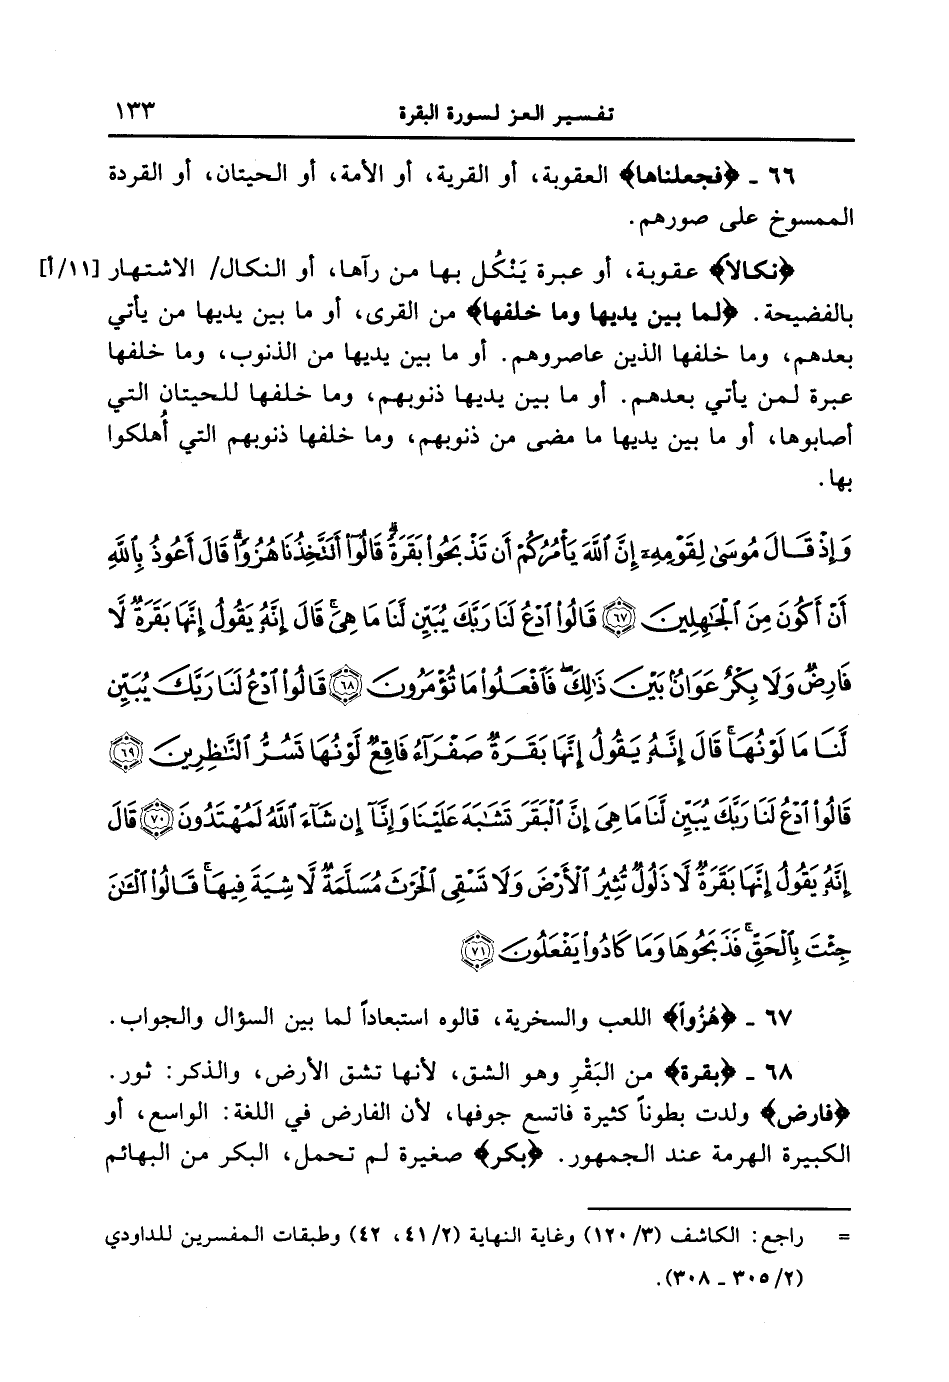 تفسير العز لسورة البقرة ١٣٣
٦٦ ـ ﴿فجعلناها﴾ العقوبة، أو القرية، أو الأمة، أو الحيتان، أو القردة
الممسوخ على صورهم.
﴿نكالاً﴾ عقوبة، أو عبرة يَنْكُل بها من رآها، أو النكال/ الاشتهار [١١/أ]
بالفضيحة. ﴿لما بين يديها وما خلفها﴾ من القرى، أو ما بين يديها من يأتي
بعدهم، وما خلفها الذين عاصروهم. أو ما بين يديها من الذنوب، وما خلفها
عبرة لمن يأتي بعدهم. أو ما بين يديها ذنوبهم، وما خلفها للحيتان التي
أصابوها، أو ما بين يديها ما مضى من ذنوبهم، وما خلفها ذنوبهم التي أُهلكوا
بها.
وَإِذْ قَالَ مُوسَىٰ لِقَوْمِهِۦٓ إِنَّ ٱللَّهَ يَأْمُرُكُمْ أَن تَذْبَحُوا۟ بَقَرَةً ۖ قَالُوٓا۟ أَتَتَّخِذُنَا هُزُوًا ۖ قَالَ أَعُوذُ بِٱللَّهِ
أَنْ أَكُونَ مِنَ ٱلْجَٰهِلِينَ ٦٧ قَالُوا۟ ٱدْعُ لَنَا رَبَّكَ يُبَيِّن لَّنَا مَا هِىَ ۚ قَالَ إِنَّهُۥ يَقُولُ إِنَّهَا بَقَرَةٌ لَّا
فَارِضٌ وَلَا بِكْرٌ عَوَانٌۢ بَيْنَ ذَٰلِكَ ۖ فَٱفْعَلُوا۟ مَا تُؤْمَرُونَ ٦٨ قَالُوا۟ ٱدْعُ لَنَا رَبَّكَ يُبَيِّن
لَّنَا مَا لَوْنُهَا ۚ قَالَ إِنَّهُۥ يَقُولُ إِنَّهَا بَقَرَةٌ صَفْرَآءُ فَاقِعٌ لَّوْنُهَا تَسُرُّ ٱلنَّٰظِرِينَ ٦٩
قَالُوا۟ ٱدْعُ لَنَا رَبَّكَ يُبَيِّن لَّنَا مَا هِىَ إِنَّ ٱلْبَقَرَ تَشَٰبَهَ عَلَيْنَا وَإِنَّآ إِن شَآءَ ٱللَّهُ لَمُهْتَدُونَ ٧٠ قَالَ
إِنَّهُۥ يَقُولُ إِنَّهَا بَقَرَةٌ لَّا ذَلُولٌ تُثِيرُ ٱلْأَرْضَ وَلَا تَسْقِى ٱلْحَرْثَ مُسَلَّمَةٌ لَّا شِيَةَ فِيهَا ۚ قَالُوا۟ ٱلْـَٰٔنَ
جِئْتَ بِٱلْحَقِّ ۚ فَذَبَحُوهَا وَمَا كَادُوا۟ يَفْعَلُونَ ٧١
٦٧ ـ ﴿هُزُواً﴾ اللعب والسخرية، قالوه استبعاداً لما بين السؤال والجواب.
٦٨ ـ ﴿بقرة﴾ من البَقْرِ وهو الشق، لأنها تشق الأرض، والذكر: ثور.
﴿فارض﴾ ولدت بطوناً كثيرة فاتسع جوفها، لأن الفارض في اللغة: الواسع، أو
الكبيرة الهرمة عند الجمهور. ﴿بكر﴾ صغيرة لم تحمل، البكر من البهائم
= راجع: الكاشف (٣/ ١٢٠) وغاية النهاية (٢/ ٤١، ٤٢) وطبقات المفسرين للداودي
(٢/ ٣٠٥ ـ ٣٠٨).